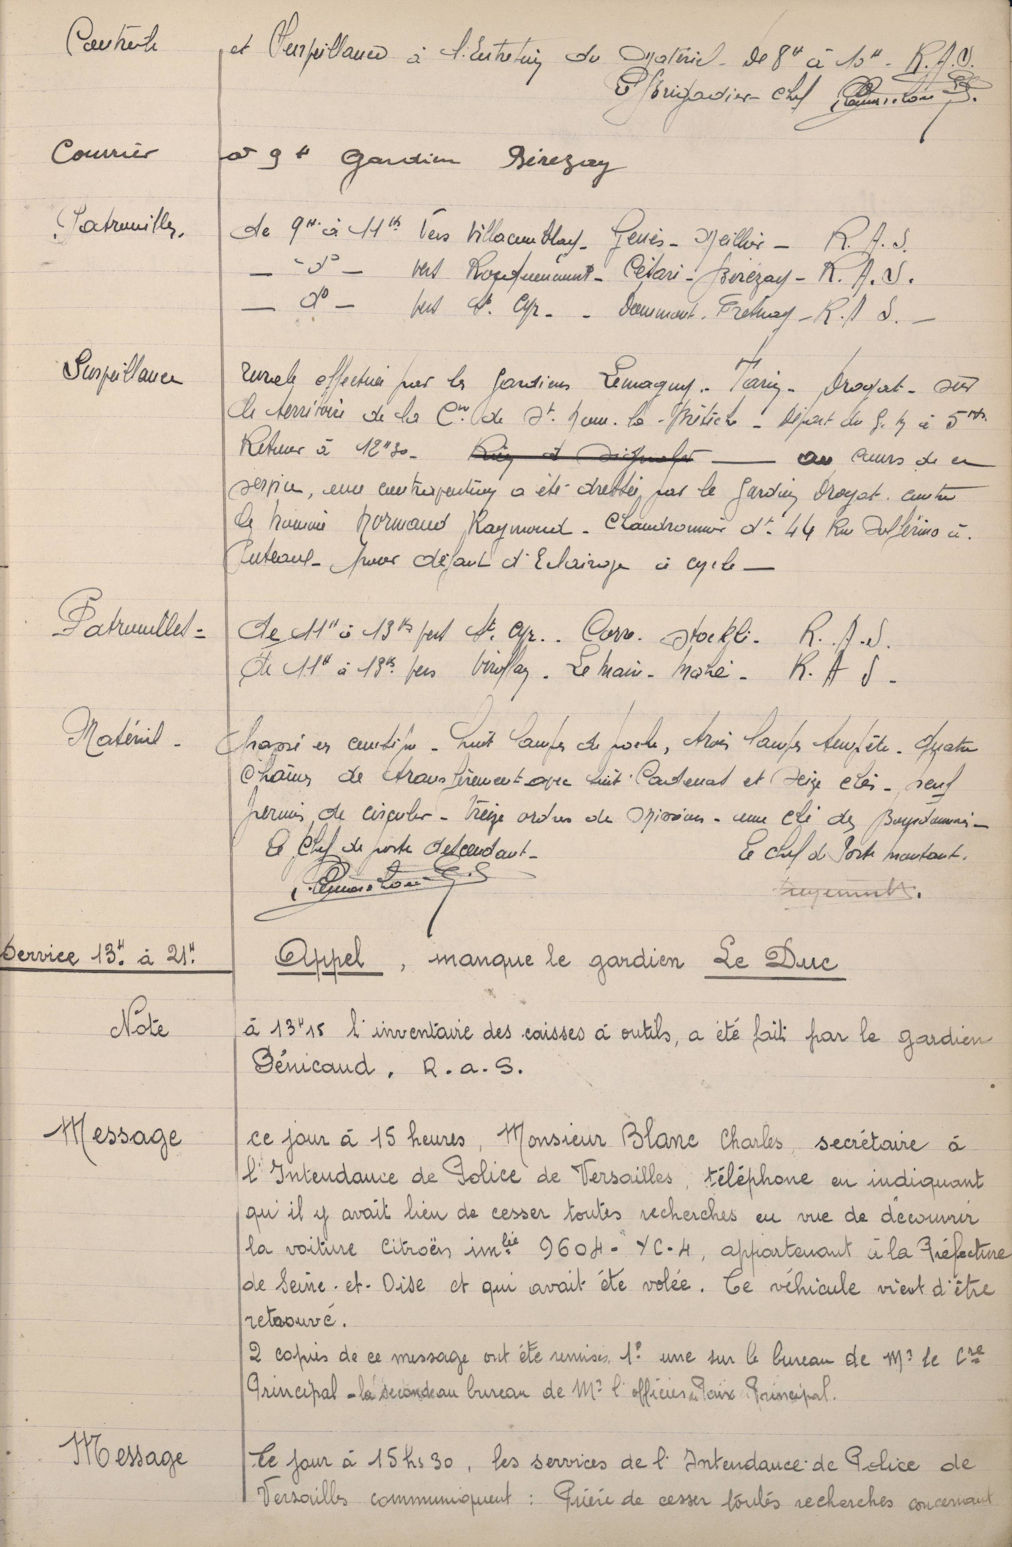 Contrôle et Surveillance à l'Entretien du Matériel. de 8H à 10H. R.A.S.
Le Brigadier-Chef
Courrier à 9H Gardien Bérezay
Patrouilles. de 9H à 11H Vers Villacoublay - Genès - Meillier - R.A.S.
— d° — vers Rocquencourt - Cétari - Bérézay - R.A.S.
— d° — vers St. Cyr. - Dommont. Fretnay - R.A.S. —
Surveillance rurale effectuée par les Gardiens Lemagny - Tarin - Droyat - sur
le territoire de la Cne de St. Nom. la Bretèche - Départ du G. M à 5H
Retour à 12H30 - Rien à Signaler — au cours de ce
service, une contravention a été dressée par le Gardien Droyat. contre
le nommé Normand Raymond - Chaudronnier dt. 44 Rue Solférino à
Puteaux - pour défaut d'Eclairage à cycle —
Patrouilles = de 11H à 13H vers St. Cyr. - Corre. Stockli - R.A.S.
de 11H à 13H vers Viroflay - Le Main - Mahé - R.A.S -
Matériel - passé en consigne - huit lampes de poche, trois lampes tempête - quatre
chaînes de avec huit Cadenas et seize clés - neuf
permis de circuler - treize ordres de Missions - une clé des
Le Chef de poste descendant - Le chef de Poste montant.
Service 13H à 21H Appel, manque le gardien Le Duc
Note à 13H15 l'inventaire des caisses à outils, a été fait par le gardien
Bénicaud. R.a.S.
Message ce jour à 15 heures, Monsieur Blanc Charles, secrétaire à
l'Intendance de Police de Versailles, téléphone en indiquant
qu'il y avait lieu de cesser toutes recherches en vue de découvrir
la voiture Citroën imlée 9604 - YC-4, appartenant à la Préfecture
de Seine-et-Oise et qui avait été volée. Ce véhicule vient d'être
retrouvé.
2 copies de ce message ont été remises. 1° une sur le bureau de Mr le Cre
Principal - la seconde au bureau de Mr l'officier Paix Principal.
Message Ce jour à 15hs30, les services de l'Intendance de Police de
Versailles communiquent : Prière de cesser toutes recherches concernant